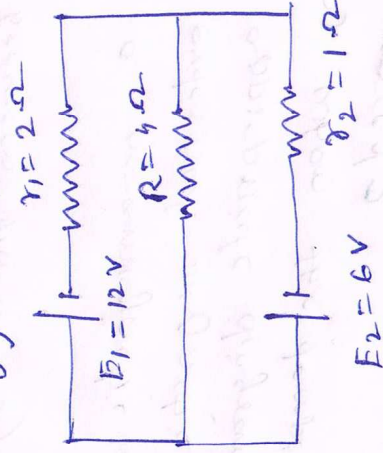 r₁ = 2 Ω
E₁ = 12 V
R = 4 Ω
r₂ = 1 Ω
E₂ = 6 V